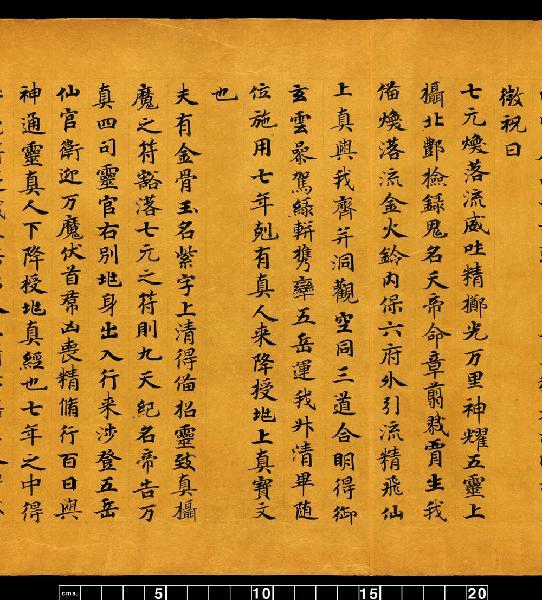 微祝曰
七元煥落流威吐精擲光万里神耀五靈上
攝北酆撿錄鬼名天帝命章翦戮賈生我
俻煥落流金火鈴內保六府外引流精飛仙
上真與我齊并洞觀空同三道合明得御
玄雲㬥駕綠軿携轡五岳運我升清畢随
位施用七年剋有真人来降授地上真寳文
也
夫有金骨玉名紫字上清得俻招靈致真攝
魔之符豁落七元之符則九天紀名帝告万
真四司靈官右別地身出入行来涉登五岳
仙官衛迎万魔伏首群凶喪精脩行百日與
神通靈真人下降授地真經也七年之中得